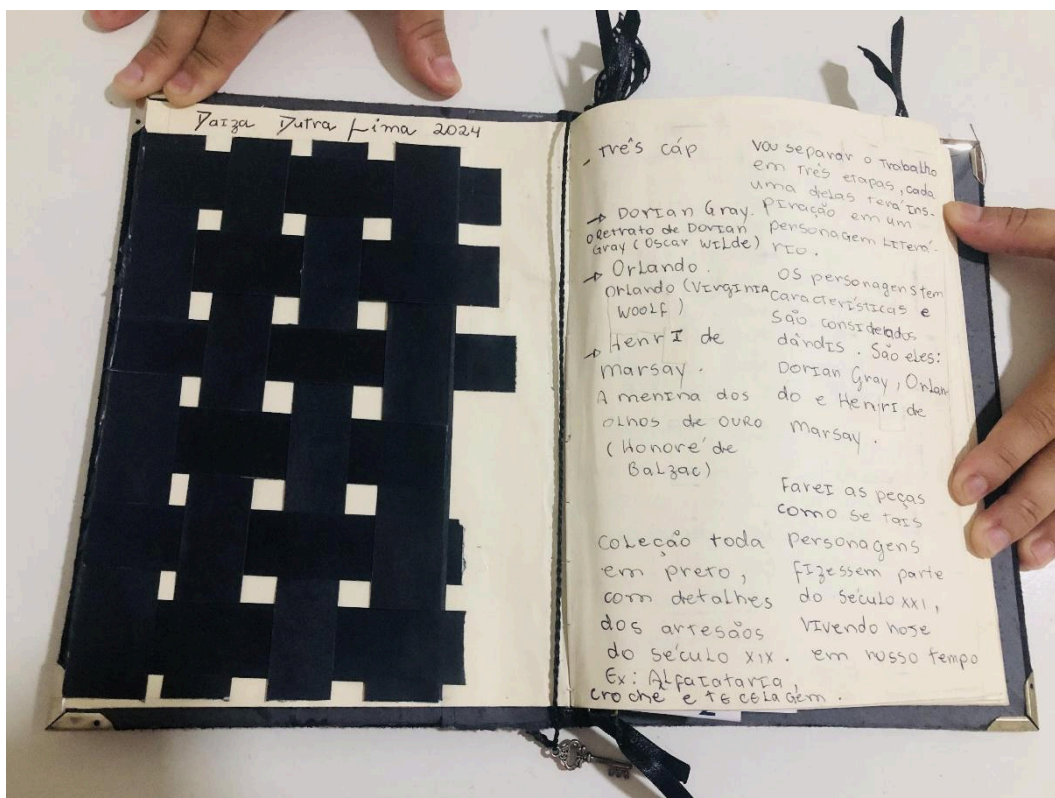 Daiza Dutra Lima 2024
- Três cáp
→ Dorian Gray.
O Retrato de Dorian
Gray (Oscar Wilde)
→ Orlando.
Orlando (Virginia
Woolf)
→ Henri de
Marsay.
A menina dos
olhos de ouro
(Honoré de
Balzac)
Coleção toda
em preto,
com detalhes
dos artesãos
do século XIX.
Ex: Alfaiataria,
crochê e tecelagem.
Vou separar o trabalho
em três etapas, cada
uma delas terá ins-
piração em um
personagem literá-
rio.
Os personagens tem
características e
são considerados
dândis. São eles:
Dorian Gray, Orlan
do e Henri de
Marsay.
Farei as peças
como se tais
personagens
fizessem parte
do século XXI,
vivendo hoje
em nosso tempo